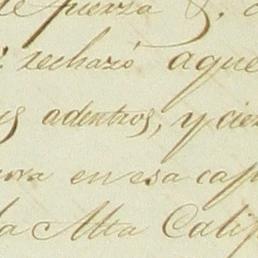 de fuerza
rechazó aque
adentros, y cie
ora en esa cap
la Alta Calif